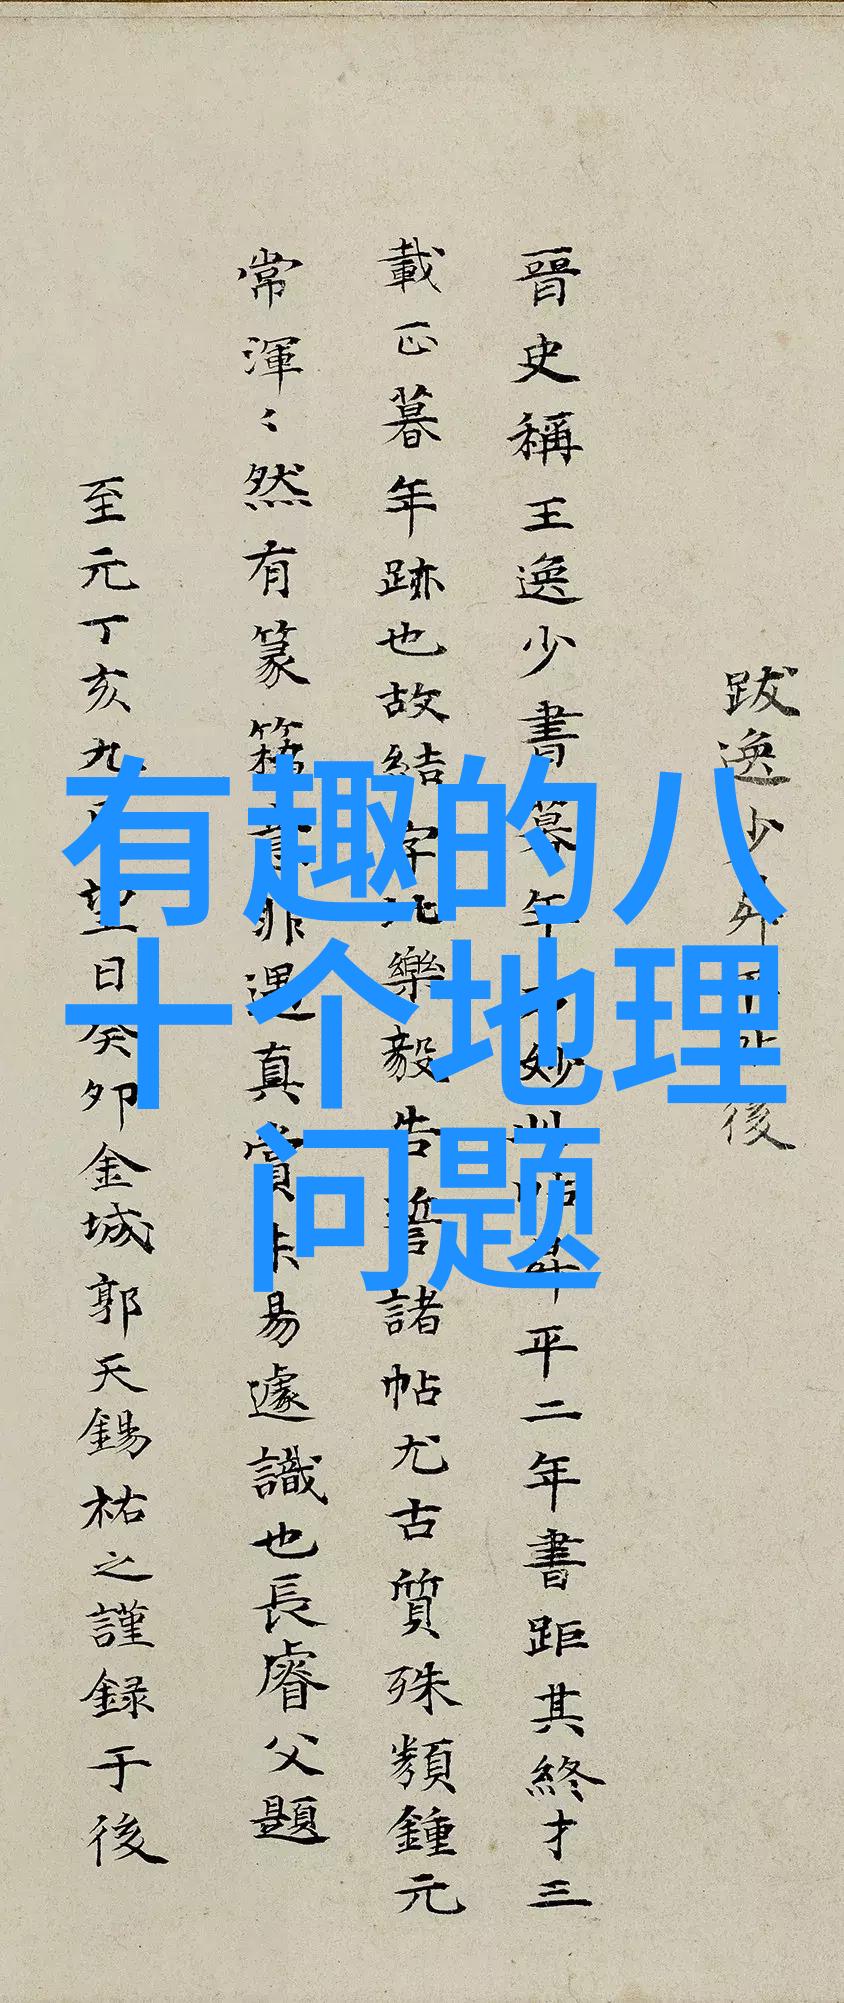 有趣的八
十个地理
问题
跋逸少昇平帖後
晉史稱王逸少書暮年方妙此帖昇平二年書距其終才三
載正暮年跡也故結字比樂毅告誓諸帖尤古質殊類鍾元
常渾〻然有篆籀意非遇真賞未易遽識也長睿父題
至元丁亥九月望日癸卯金城郭天錫祐之謹録于後